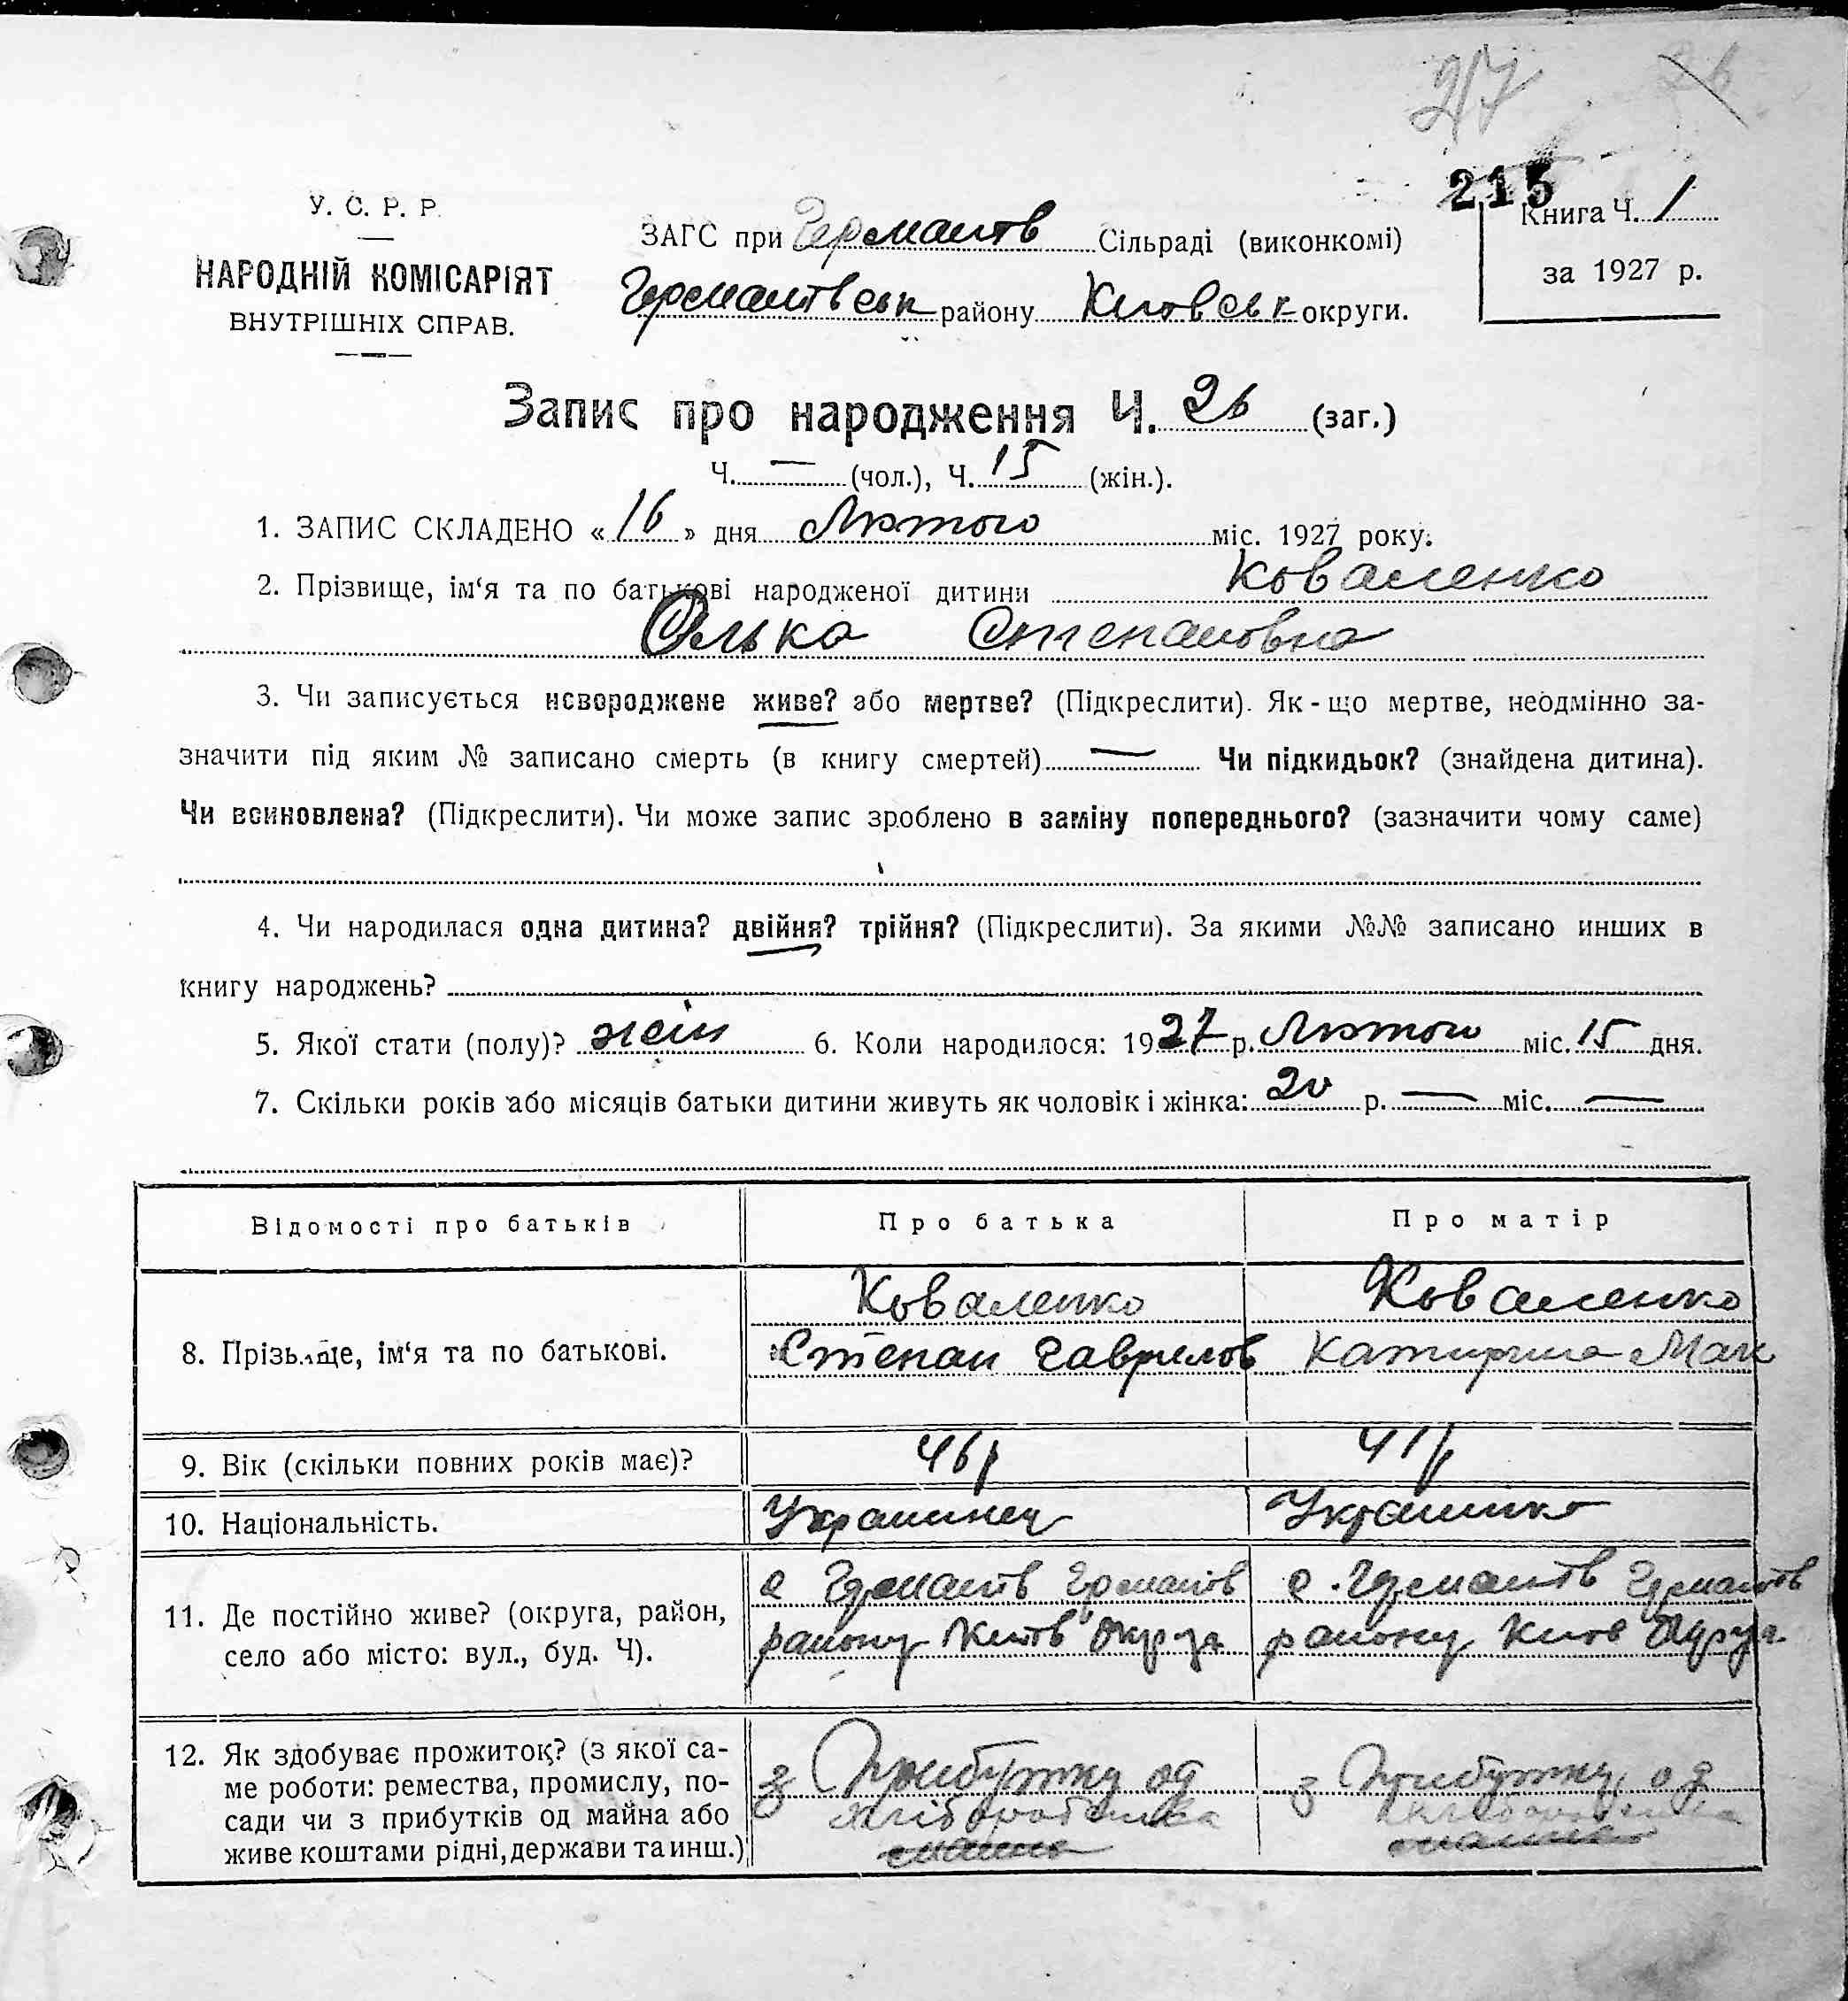 27 26
215
У. С. Р. Р.
НАРОДНІЙ КОМІСАРІЯТ
ВНУТРІШНІХ СПРАВ.
ЗАГС при Германов Сільраді (виконкомі)
Германовськ району Київськ округи.
Книга Ч. 1
за 1927 р.
Запис про народження Ч. 26 (заг.)
Ч. — (чол.), Ч. 15 (жін.).
1. ЗАПИС СКЛАДЕНО «16» дня Лютого міс. 1927 року.
2. Прізвище, ім‘я та по батькові народженої дитини Коваленко
Олька Степановна
3. Чи записується новороджене живе? або мертве? (Підкреслити). Як-що мертве, неодмінно за-
значити під яким № записано смерть (в книгу смертей) — Чи підкидьок? (знайдена дитина).
Чи всиновлена? (Підкреслити). Чи може запис зроблено в заміну попереднього? (зазначити чому саме)
4. Чи народилася одна дитина? двійня? трійня? (Підкреслити). За якими №№ записано инших в
книгу народжень?
5. Якої стати (полу)? жін 6. Коли народилося: 1927 р. Лютого міс. 15 дня.
7. Скільки років або місяців батьки дитини живуть як чоловік і жінка: 20 р. — міс. —
Відомості про батьків Про батька Про матір
8. Прізвище, ім‘я та по батькові. Коваленко Коваленко
Степан Гаврилов Катирина Мак
9. Вік (скільки повних років має)? 46 р 41 р
10. Національність. Украинец Українка
11. Де постійно живе? (округа, район,
село або місто: вул., буд. Ч).
с Германов Германов с. Германов Германов
району Київ Округа району Київ Округ
12. Як здобуває прожиток? (з якої са-
ме роботи: ремества, промислу, по-
сади чи з прибутків од майна або
живе коштами рідні, держави та инш.)
з Прибутку од з Прибутку од
хліборобства